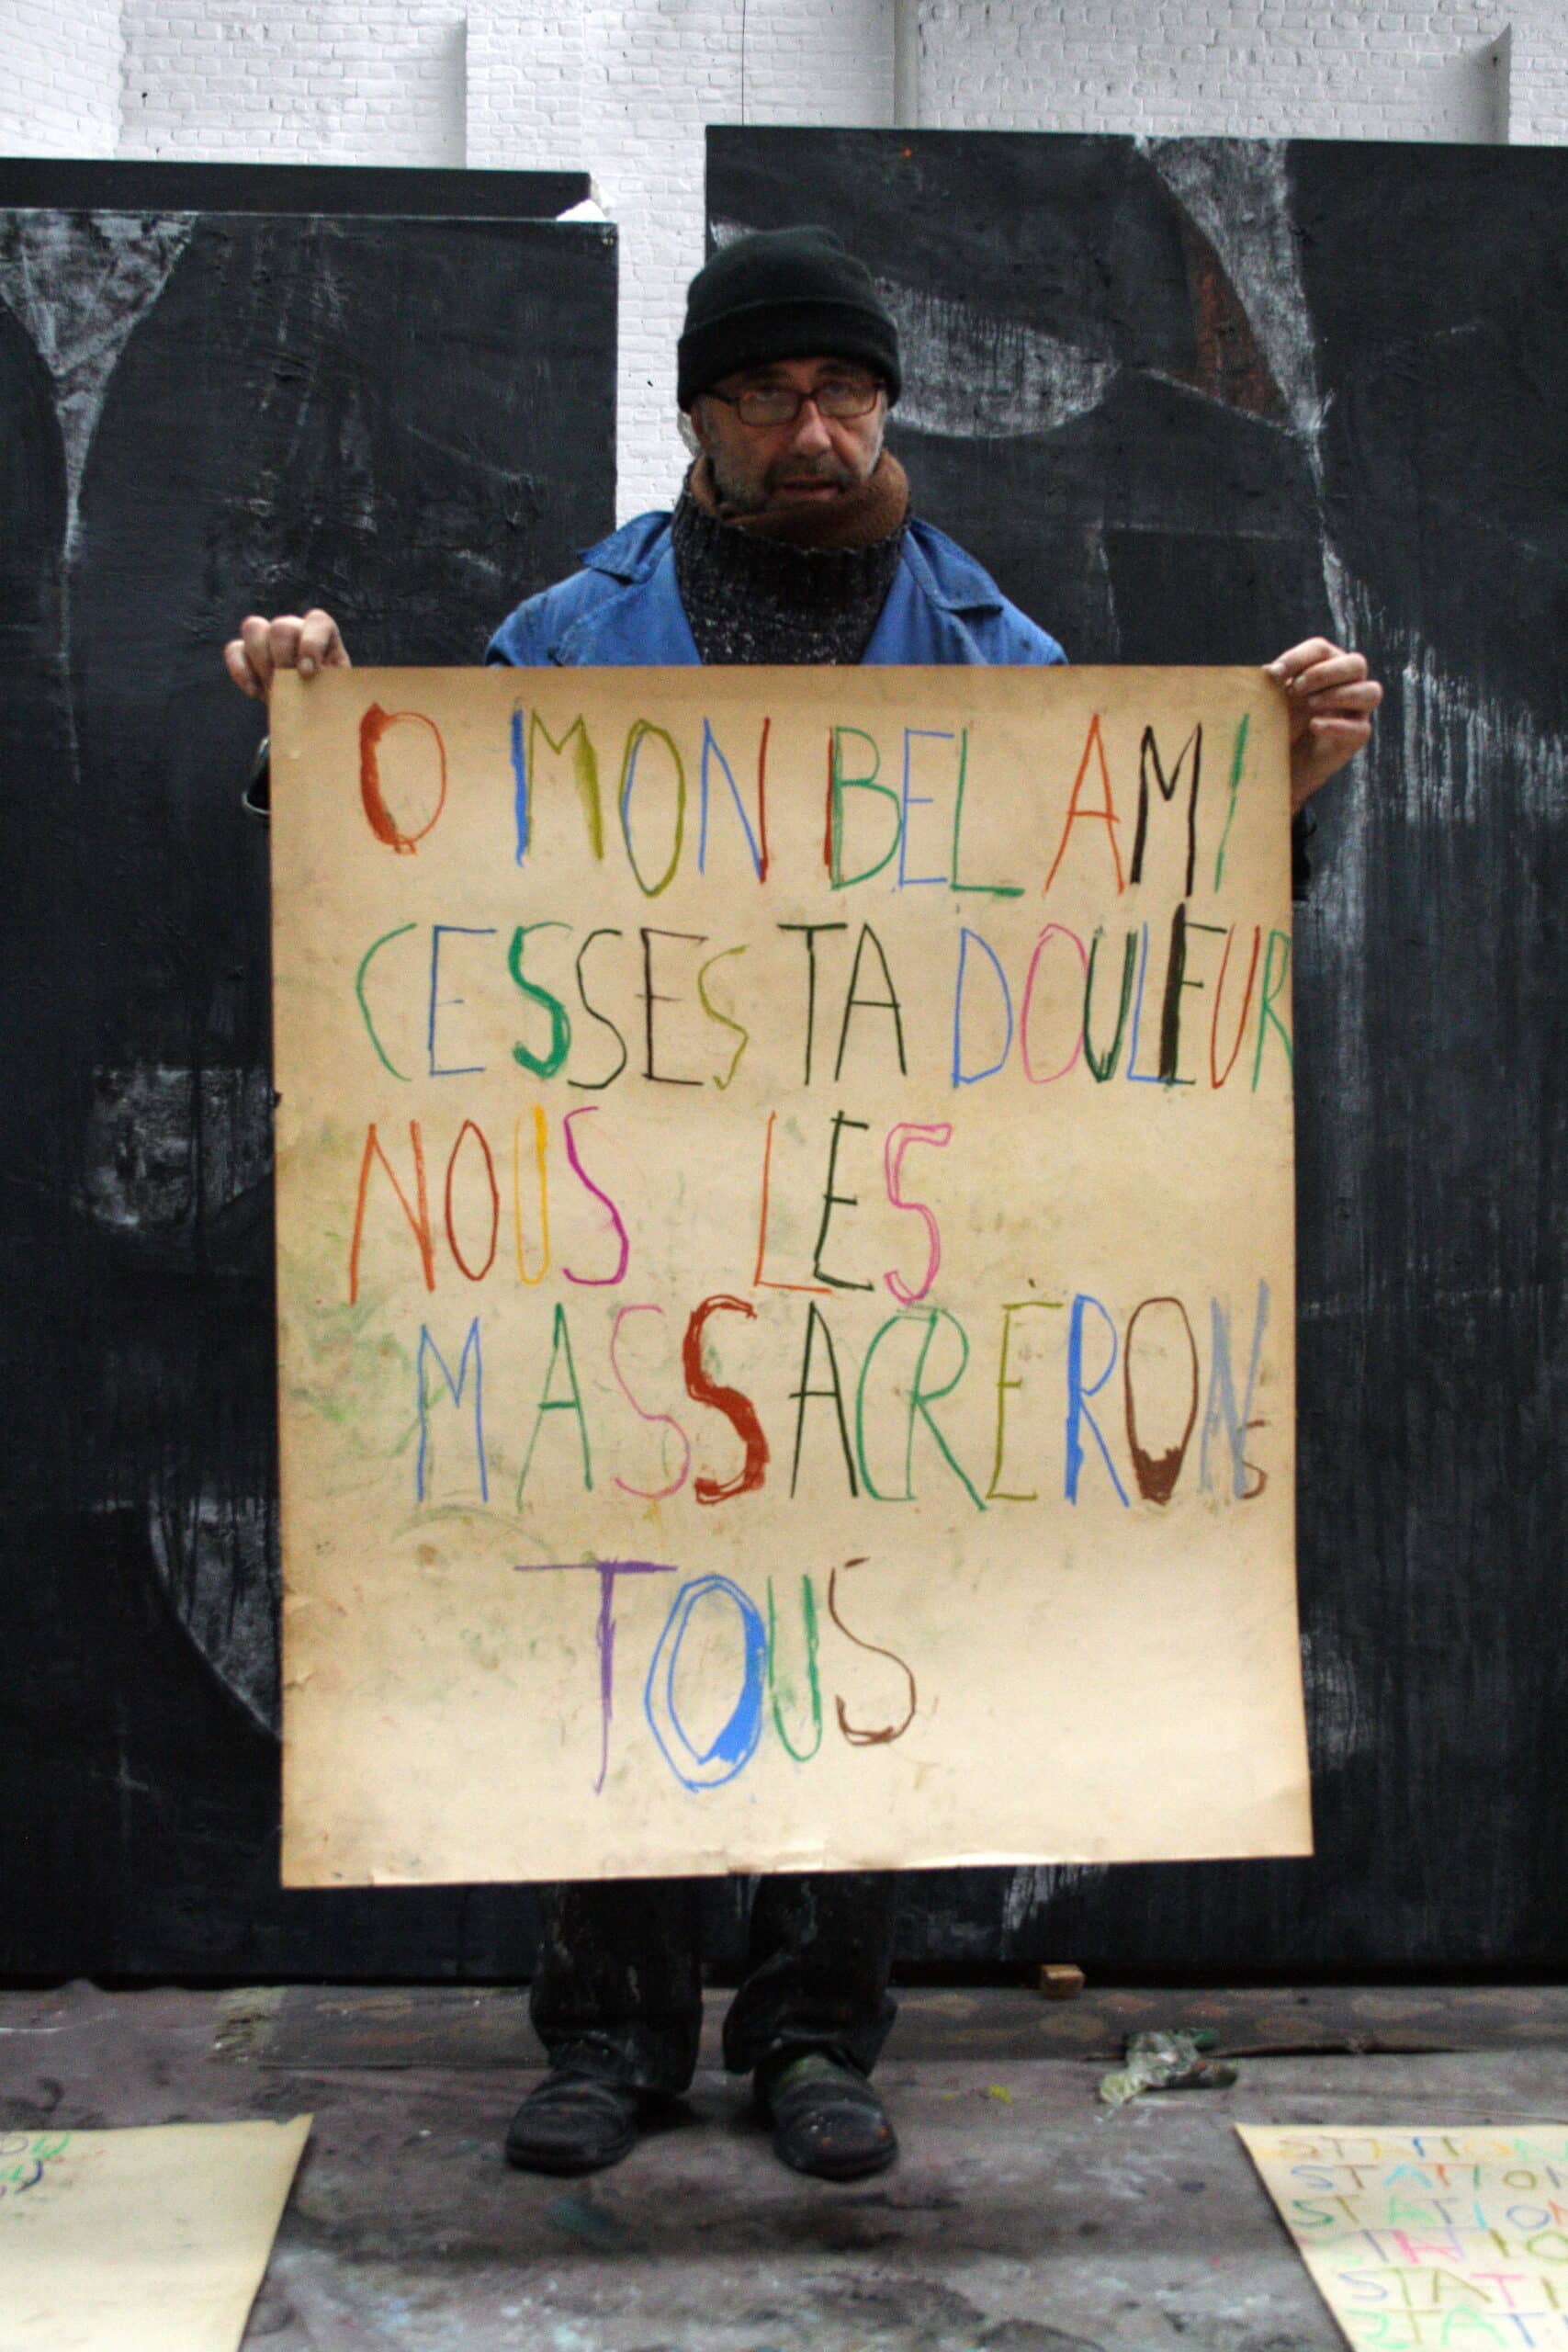 O MON BEL AMI
CESSES TA DOULEUR
NOUS LES
MASSACRÉRONS
TOUS
STATION
STATION
STATION
STATI
STAT